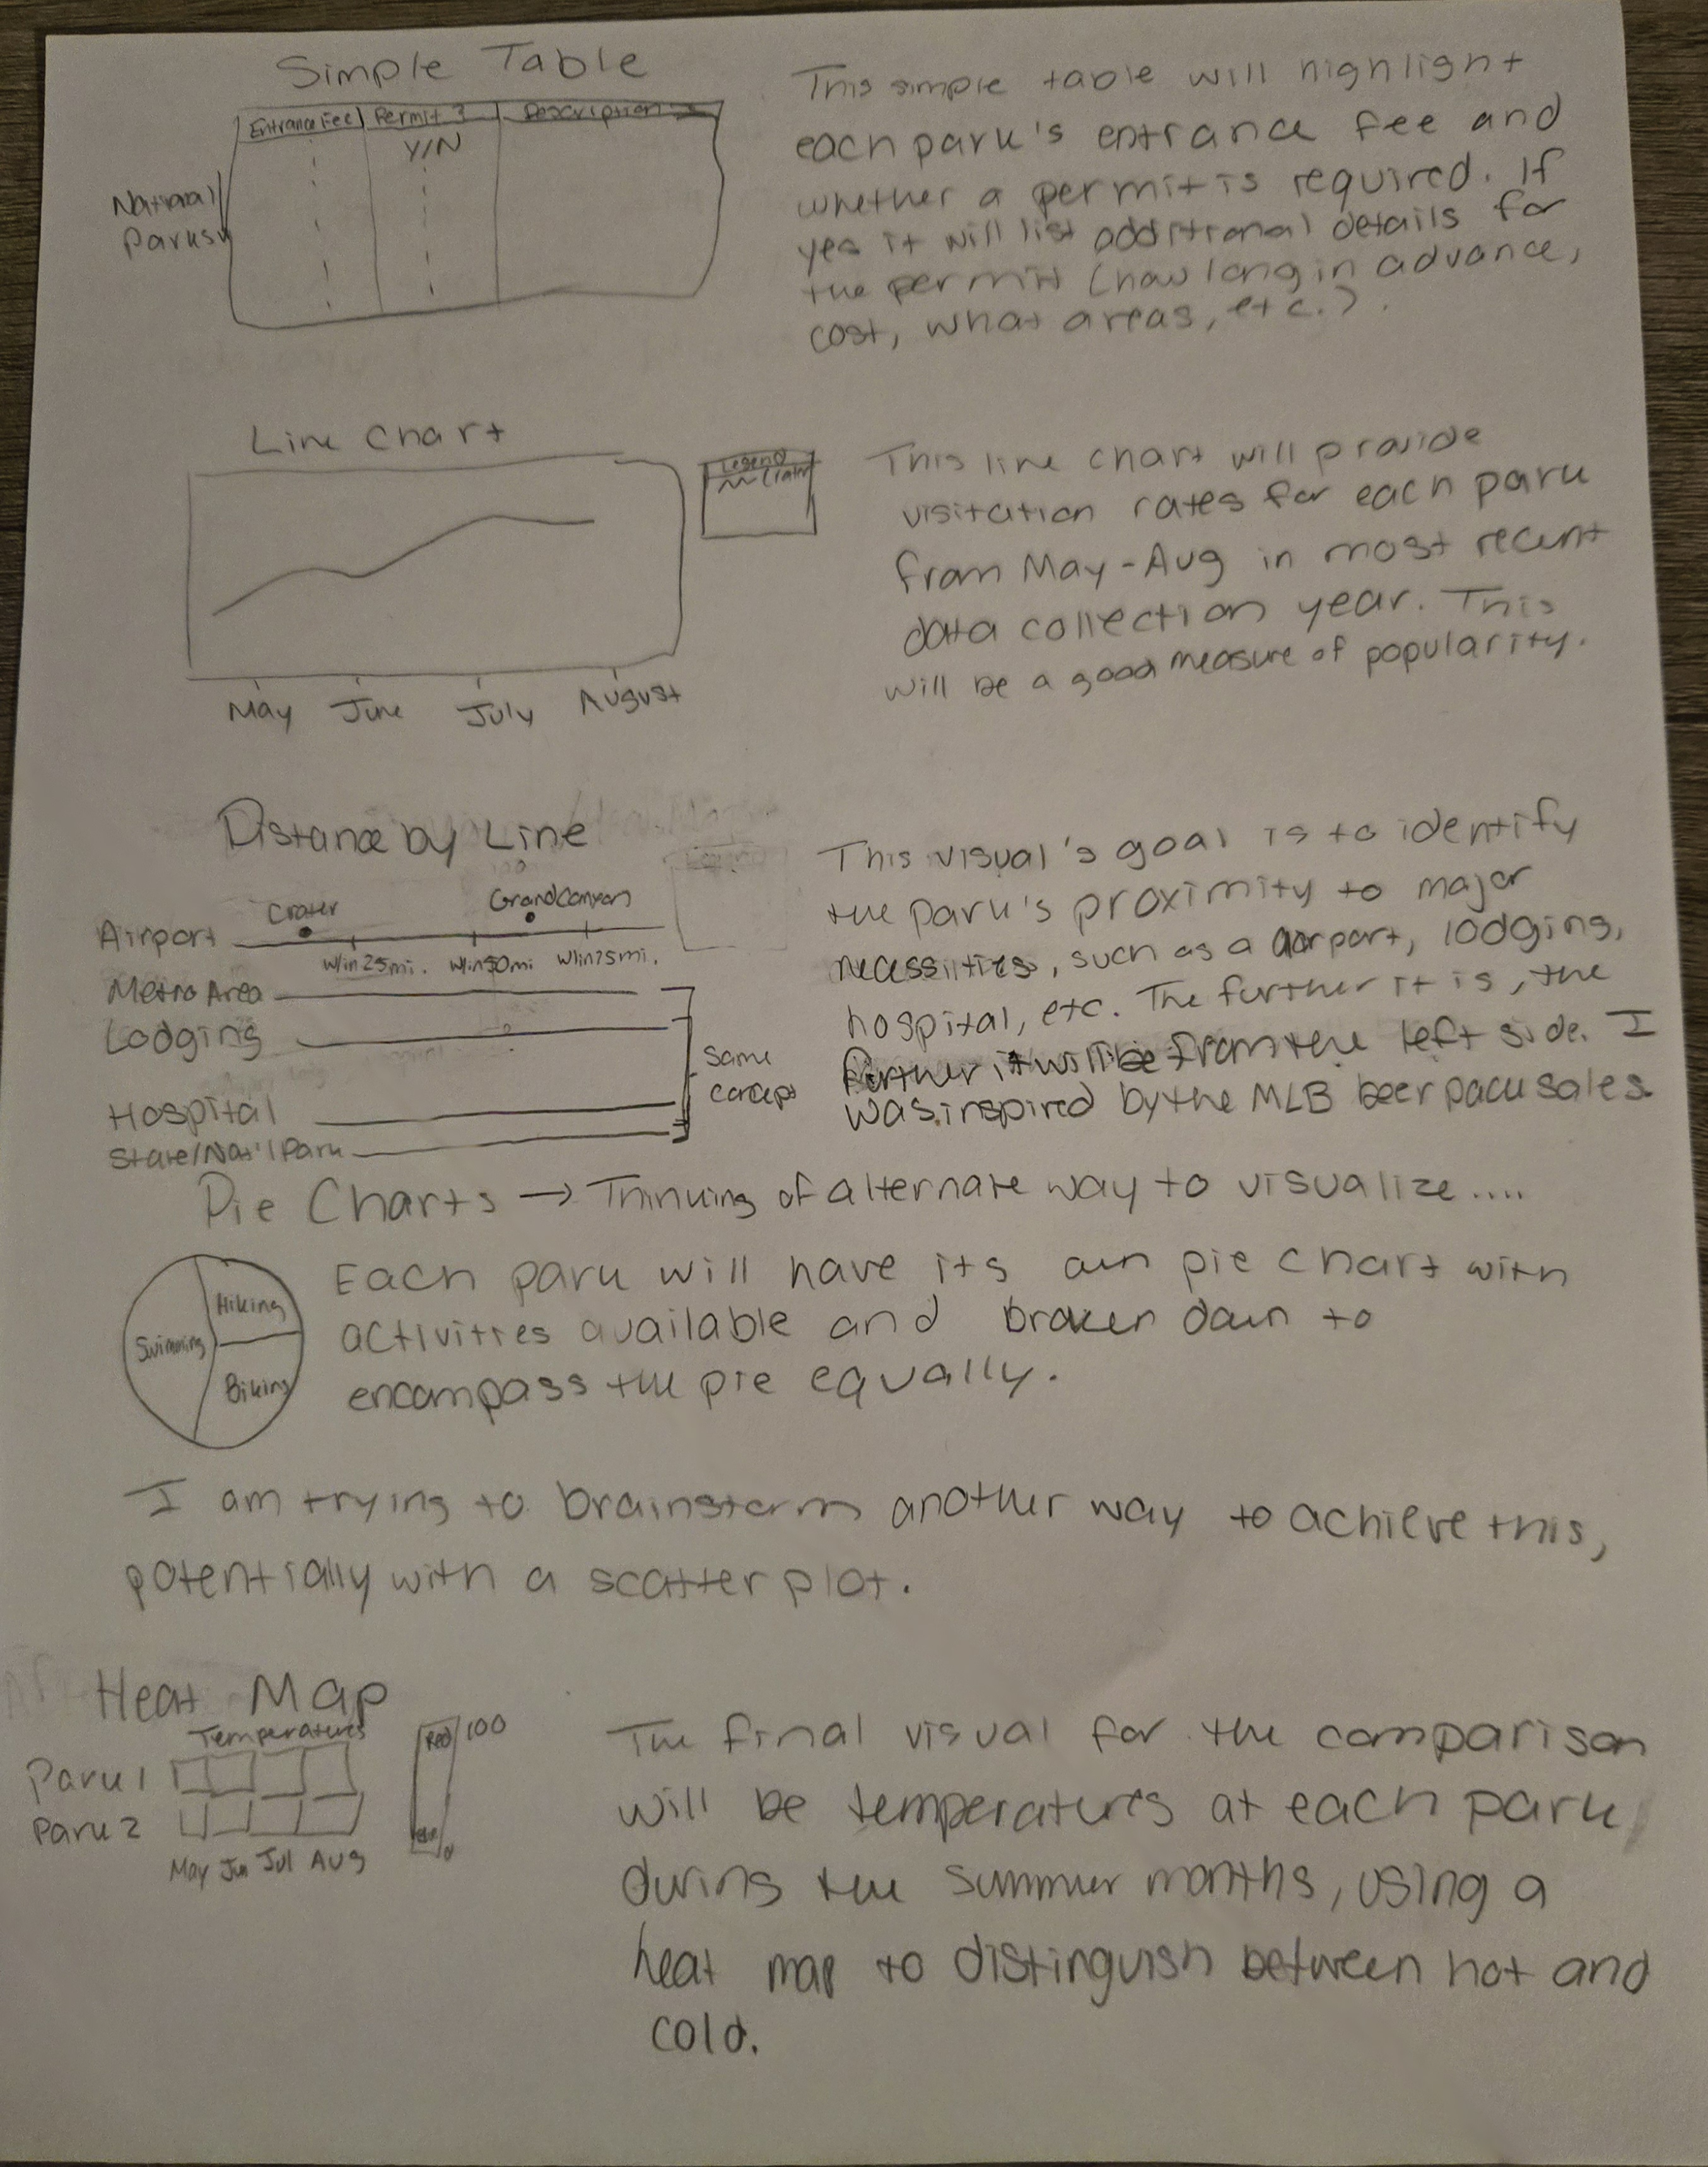 Simple Table
Entrance Fee Permit? Description
Y/N
National
Parks
This simple table will highlight
each park's entrance fee and
whether a permit is required. If
yes it will list additional details for
the permit (how long in advance,
cost, what areas, etc.).
Line Chart
Legend
May June July August
This line chart will provide
visitation rates for each park
from May-Aug in most recent
data collection year. This
will be a good measure of popularity.
Distance by Line
Crater Grand Canyon
Airport
w/in 25mi. w/in 50mi w/in 75mi.
Metro Area
Lodging
Hospital
State/Nat'l Park
same
concept
This visual's goal is to identify
the park's proximity to major
necessities, such as a airport, lodging,
hospital, etc. The further it is, the
further it will be from the left side. I
was inspired by the MLB beer pack sales.
Pie Charts → Thinking of alternate way to visualize....
Hiking
Swimming
Biking
Each park will have its own pie chart with
activities available and broken down to
encompass the pie equally.
I am trying to brainstorm another way to achieve this,
potentially with a scatter plot.
Heat Map
Temperatures
Park 1
Park 2
May Jun Jul Aug
Red 100
0
The final visual for the comparison
will be temperatures at each park
during the summer months, using a
heat map to distinguish between hot and
cold.